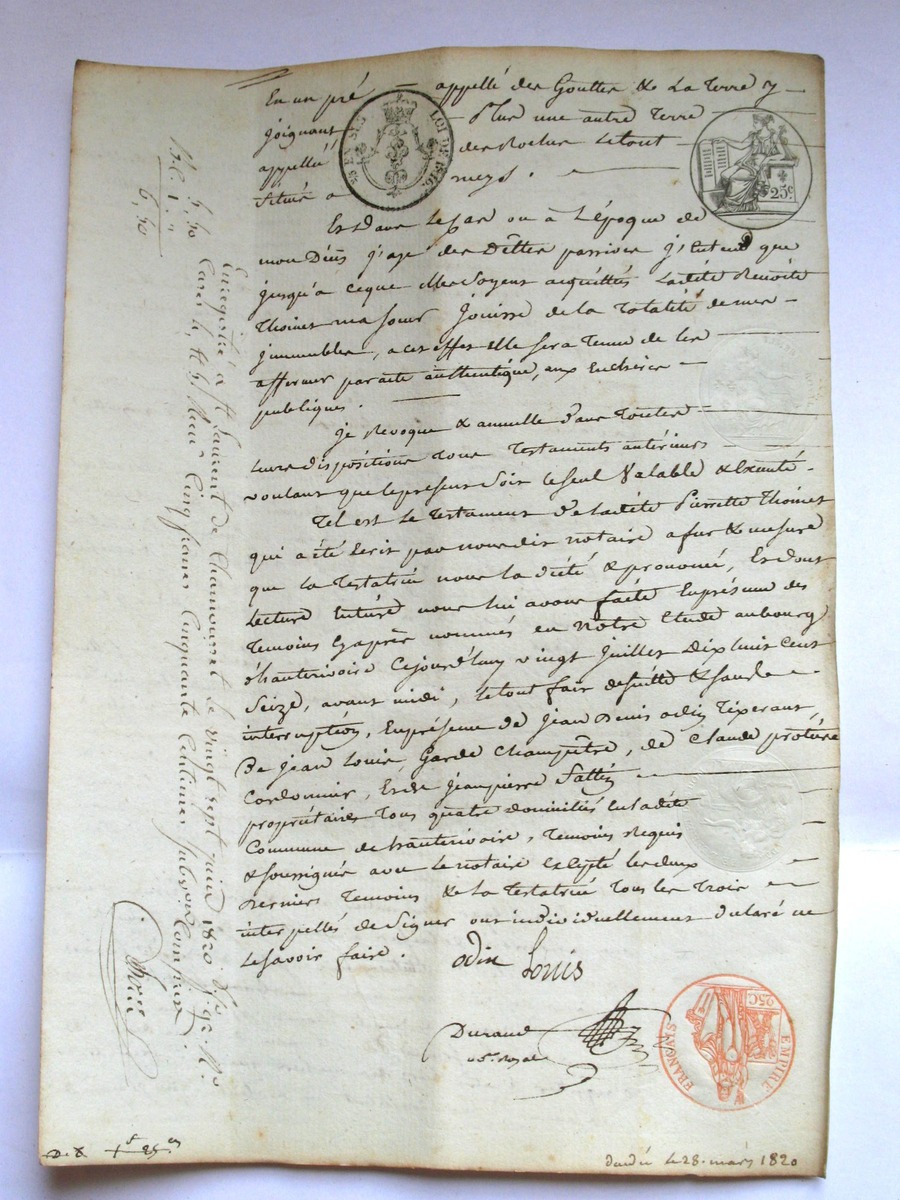 En un pré appellé des Gouttes & La Terre y
joignant Plus une autre Terre
appellée des Roches Le tout
situé a meys.
Et Dans le Cas ou à L'Epoque de
mon Décès j'aye des Dêttes passives j'Entend que
jusqu'a ceque Elles soyent acquittées Ladite Benoite
Thoinet ma soeur jouisse de la Totalité de mes
jmmeubles, a cet effet Elle sera Tenue de les
affermer par acte authentique, aux Enchères
publiques.
Je Revoque & annulle Dans Toutes
Leurs dispositions Tous Testaments antérieurs
voulant que le present soit le seul Valable & Exécuté.
Tel est Le Testament De Ladite Pierrette Thoinet
qui a été Ecrit par nous dit notaire a fur & mesure
que la Testatrice nous la dicté & prononcé, Et dont
Lecture Entière nous lui avons faite En présence des
Temoins Cy après nommés en Notre Etude au bourg
d'hauterivoire Cejourd'huy vingt juillet Dix huit Cent
Seize, avant midi, le tout fait de suitte & sans
interruption, En présence de jean Denis odin Tixerant,
De jean Louis, Garde Champêtre, de Claude
Cordonnier, Et de jean pierre
propriétaires Tous quatre Domiciliés En Ladite
Commune de hauterivoire, Temoins Requis
& soussignés avec le notaire Excepté les deux
Derniers Temoins & La Testatrice Tous les Trois
interpellés de Signer ont individuellement Déclaré ne
Le savoir faire.
odin Louis
Durand
no.re Royal
EN SUS
LOI DE 1816
25c
EMPIRE FRANÇAIS
25C
Enregistré a St Laurent de Chamousset le vingt sept mars 1820
Reçu Cinq francs Cinquante Centimes
5,50
5,50
28. mars 1820